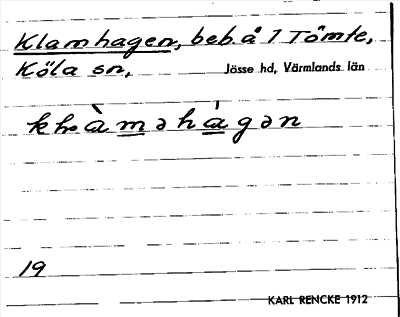 Klamhagen, beb. å 1 Tömte,
Köla sn, Jösse hd, Värmlands län
19
KARL RENCKE 1912